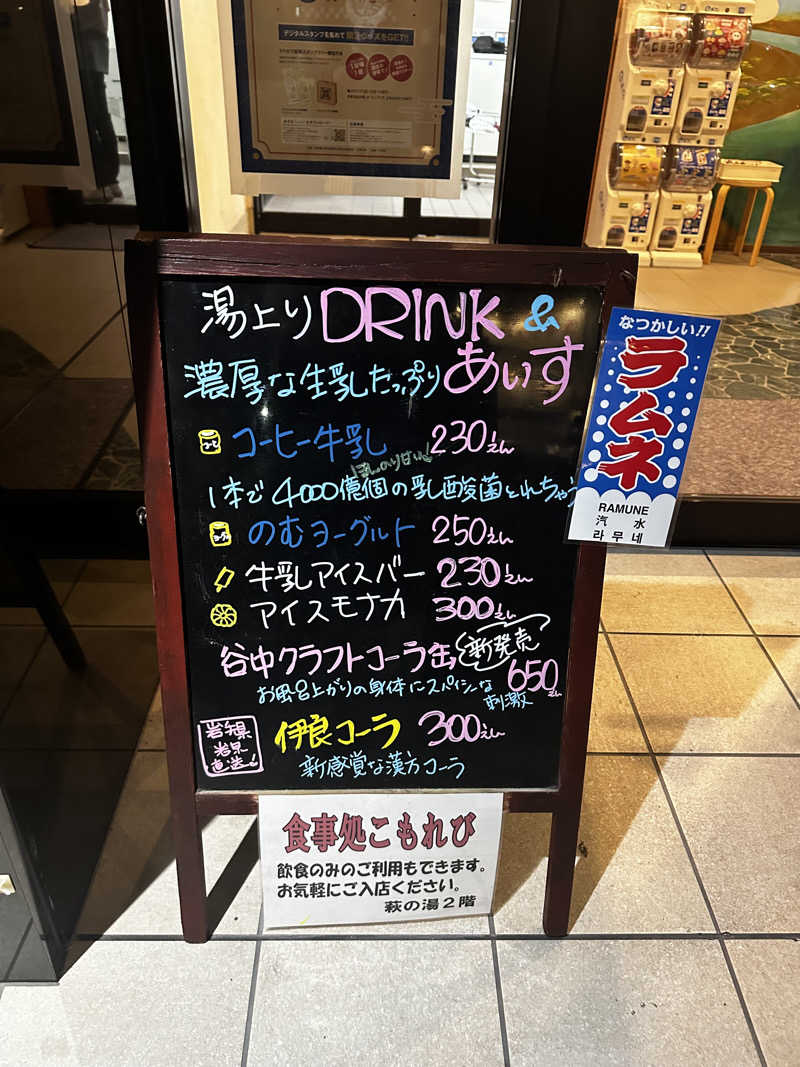 デジタルスタンプを集めて限定グッズをGET!!
湯上りDRINK &
濃厚な生乳たっぷりあいす
コーヒー牛乳 230えん
1本で4000億個の乳酸菌とれちゃう
ヨーグルト
のむヨーグルト 250えん
牛乳アイスバー 230えん
アイスモナカ 300えん
谷中クラフトコーラ缶 新発売 650えん
お風呂上がりの身体にスパイシーな刺激
岩手県
岩泉
直送!
伊良コーラ 300えん
新感覚な漢方コーラ
なつかしい!!
ラムネ
RAMUNE
汽水
라무네
食事処こもれび
飲食のみのご利用もできます。
お気軽にご入店ください。
萩の湯2階